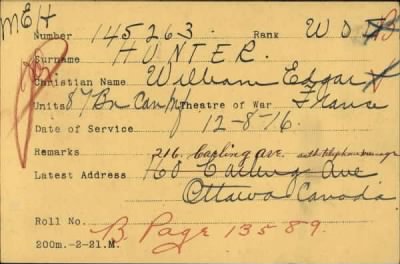 MEH
Number 145263 Rank W O II B
Surname HUNTER.
Christian Name William Edgar
Units 87 Bn Can Inf Theatre of War France
Date of Service 12-8-16.
Remarks 216 Carling Ave. auth telephone
Latest Address 160 Carling Ave
Ottawa Canada
Roll No. B. Page 13589.
200m.-2-21.M.